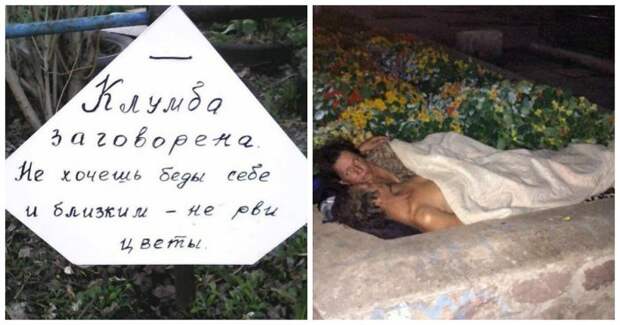 Клумба
заговорена.
Не хочешь беды себе
и близким - не рви
цветы.